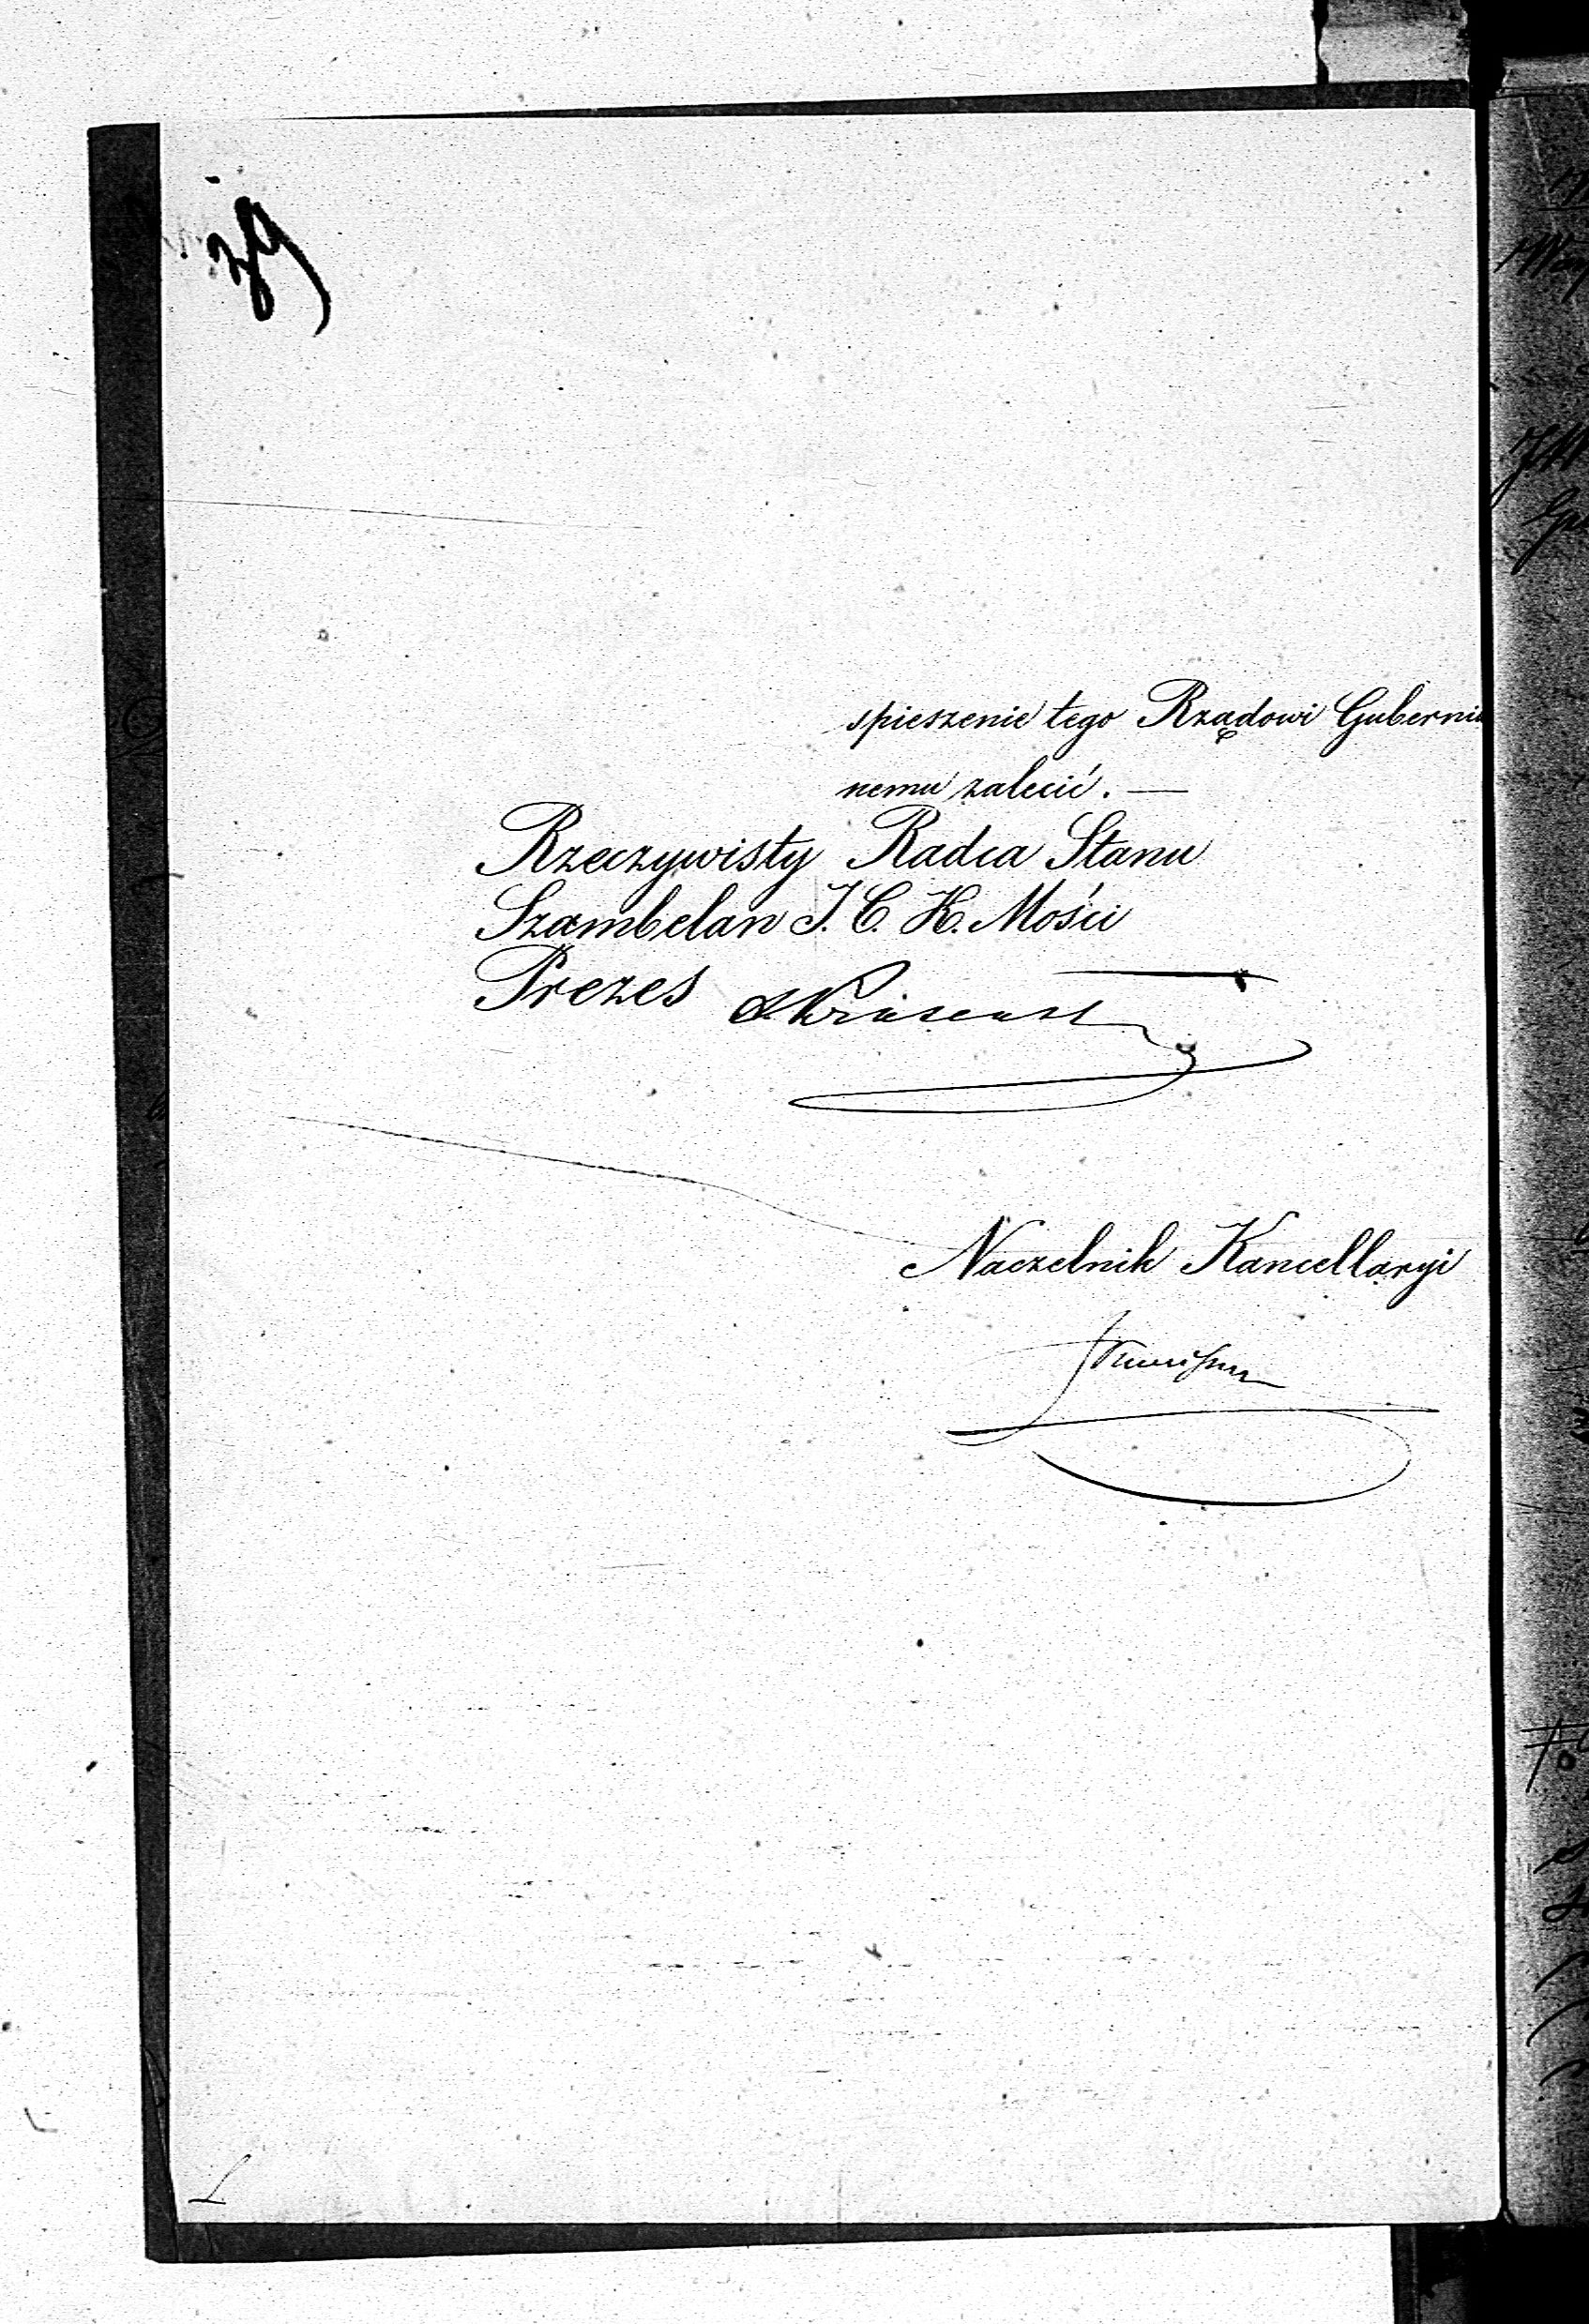 39
spieszenie tego Rządowi Guberni
nemu zalecić. —
Rzeczywisty Radca Stanu
Szambelan J. C. K. Mości
Prezes
Naczelnik Kancellaryi